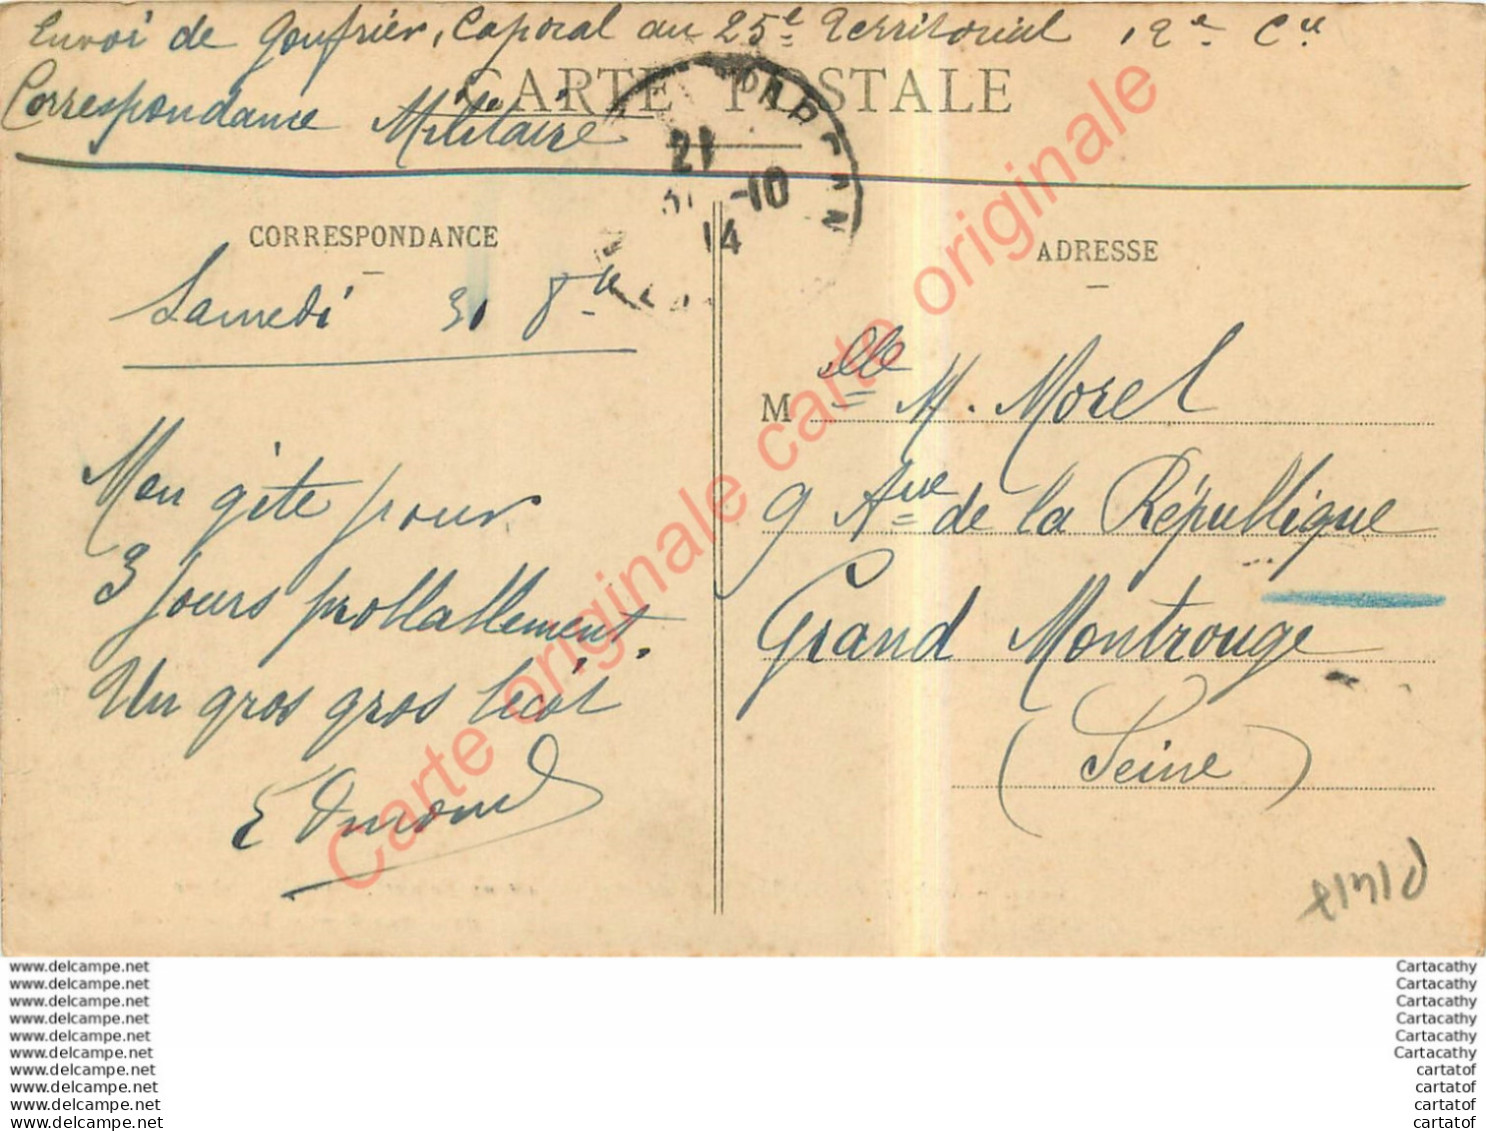 Envoi de Goufrier, Caporal au 25e Territorial, 12e Cie
CARTE POSTALE
Correspondance Militaire
21
31 -10
14
CORRESPONDANCE
ADRESSE
Samedi 31 8bre
Melle M. Morel
9 Avue de la République
Grand Montrouge
(Seine)
Mon gîte pour
3 jours probablement.
Un gros gros bécot
Edmond
Carte originale carte originale carte originale
www.delcampe.net
www.delcampe.net
www.delcampe.net
www.delcampe.net
www.delcampe.net
www.delcampe.net
www.delcampe.net
www.delcampe.net
www.delcampe.net
www.delcampe.net
Cartacathy
Cartacathy
Cartacathy
Cartacathy
Cartacathy
Cartacathy
cartatof
cartatof
cartatof
cartatof